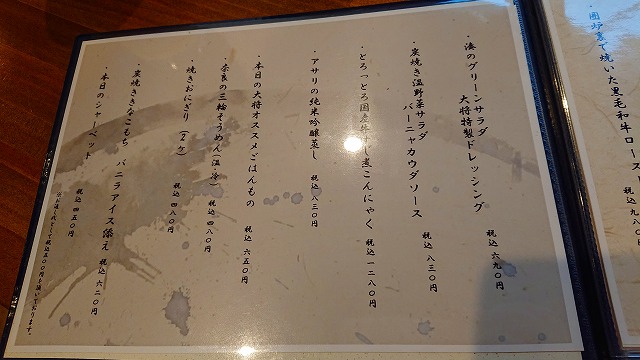 ・囲炉裏で焼いた黒毛和牛ロース
税込 九八〇
・湊のグリーンサラダ
大将特製ドレッシング
税込 六九〇円
・炭焼き温野菜サラダ
バーニャカウダソース
税込 八三〇円
・とろっとろ国産牛すじ煮こんにゃく
税込 一二八〇円
・アサリの純米吟醸蒸し
税込 八三〇円
・本日の大将オススメごはんもの
税込 六五〇円
・奈良の三輪そうめん(温・冷)
税込 四八〇円
・焼きおにぎり (2ケ)
税込 四八〇円
・炭焼ききなこもち バニラアイス添え
税込 六二〇円
・本日のシャーベット
税込 四五〇円
※お通し代として税込五〇〇円を頂いております。